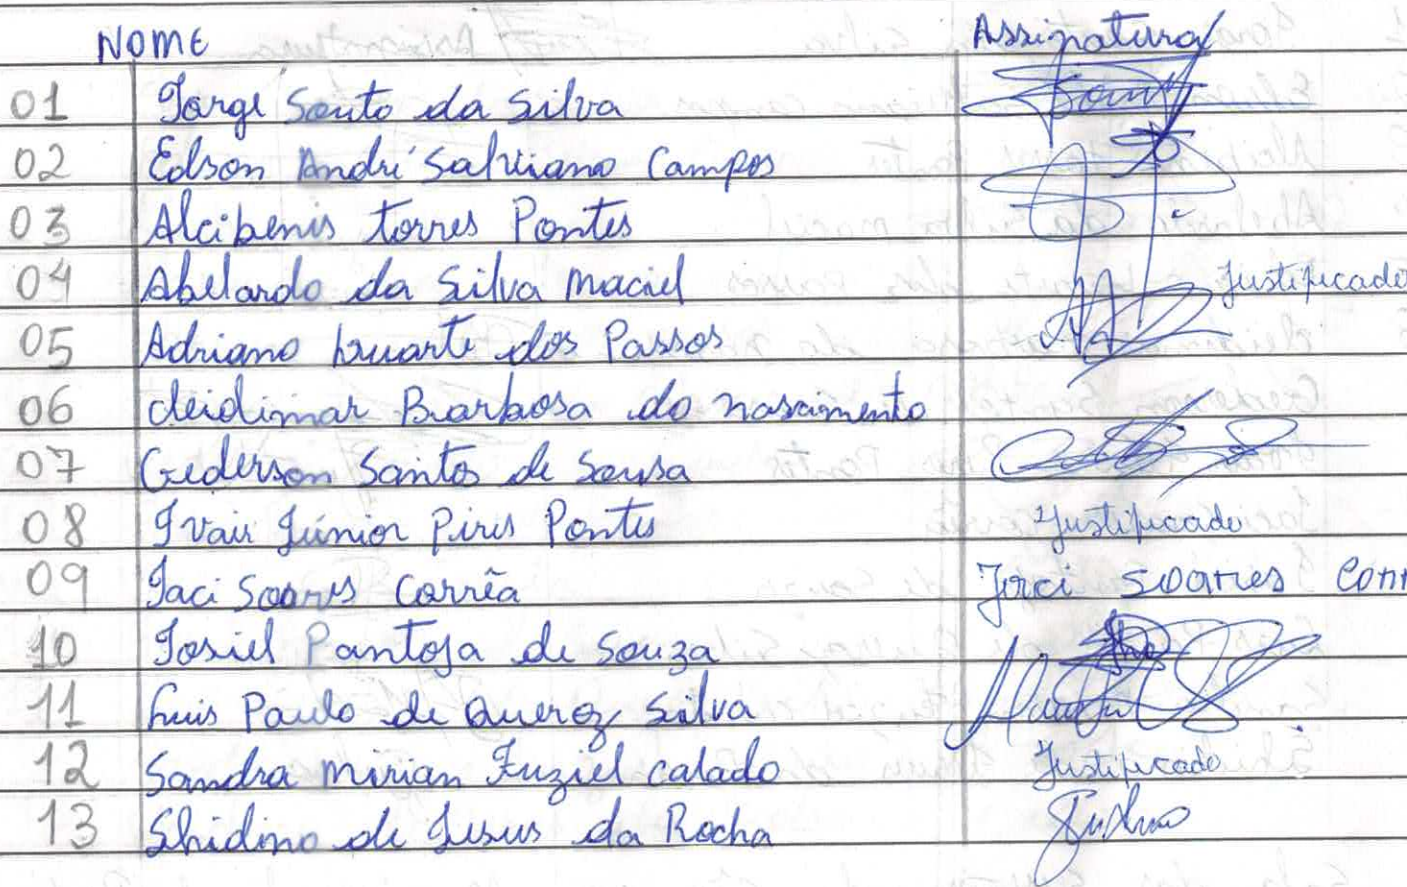 NOME Assinatura
01 Jorge Souto da Silva
02 Edson André Salviano Campos
03 Alcibenis torres Pontes
04 Abelardo da Silva maciel Justificado
05 Adriano Duarte dos Passos
06 cleidimar Barbosa do nascimento
07 Gederson Santos de Sousa
08 Ivair Júnior Pires Pontes Justificado
09 Jaci Soares Corrêa Jaci Soares Corr
10 Josiel Pantoja de Souza
11 Luis Paulo de Queroz Silva
12 Sandra mirian Fuziel calado Justificado
13 Shidino de Jesus da Rocha